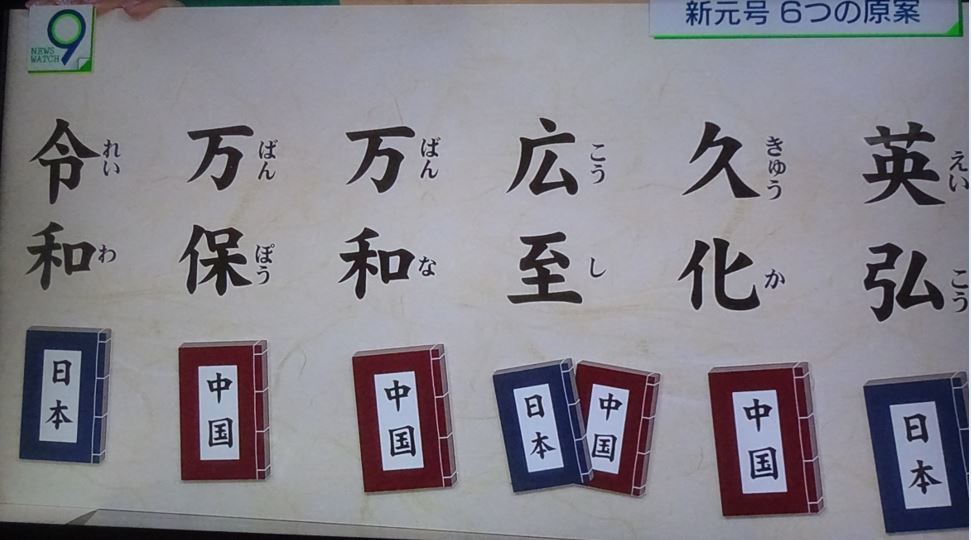 NEWS WATCH 9
新元号 6つの原案
令和
れいわ
万保
ばんぽう
万和
ばんな
広至
こうし
久化
きゅうか
英弘
えいこう
日本
中国
中国
日本
中国
中国
日本